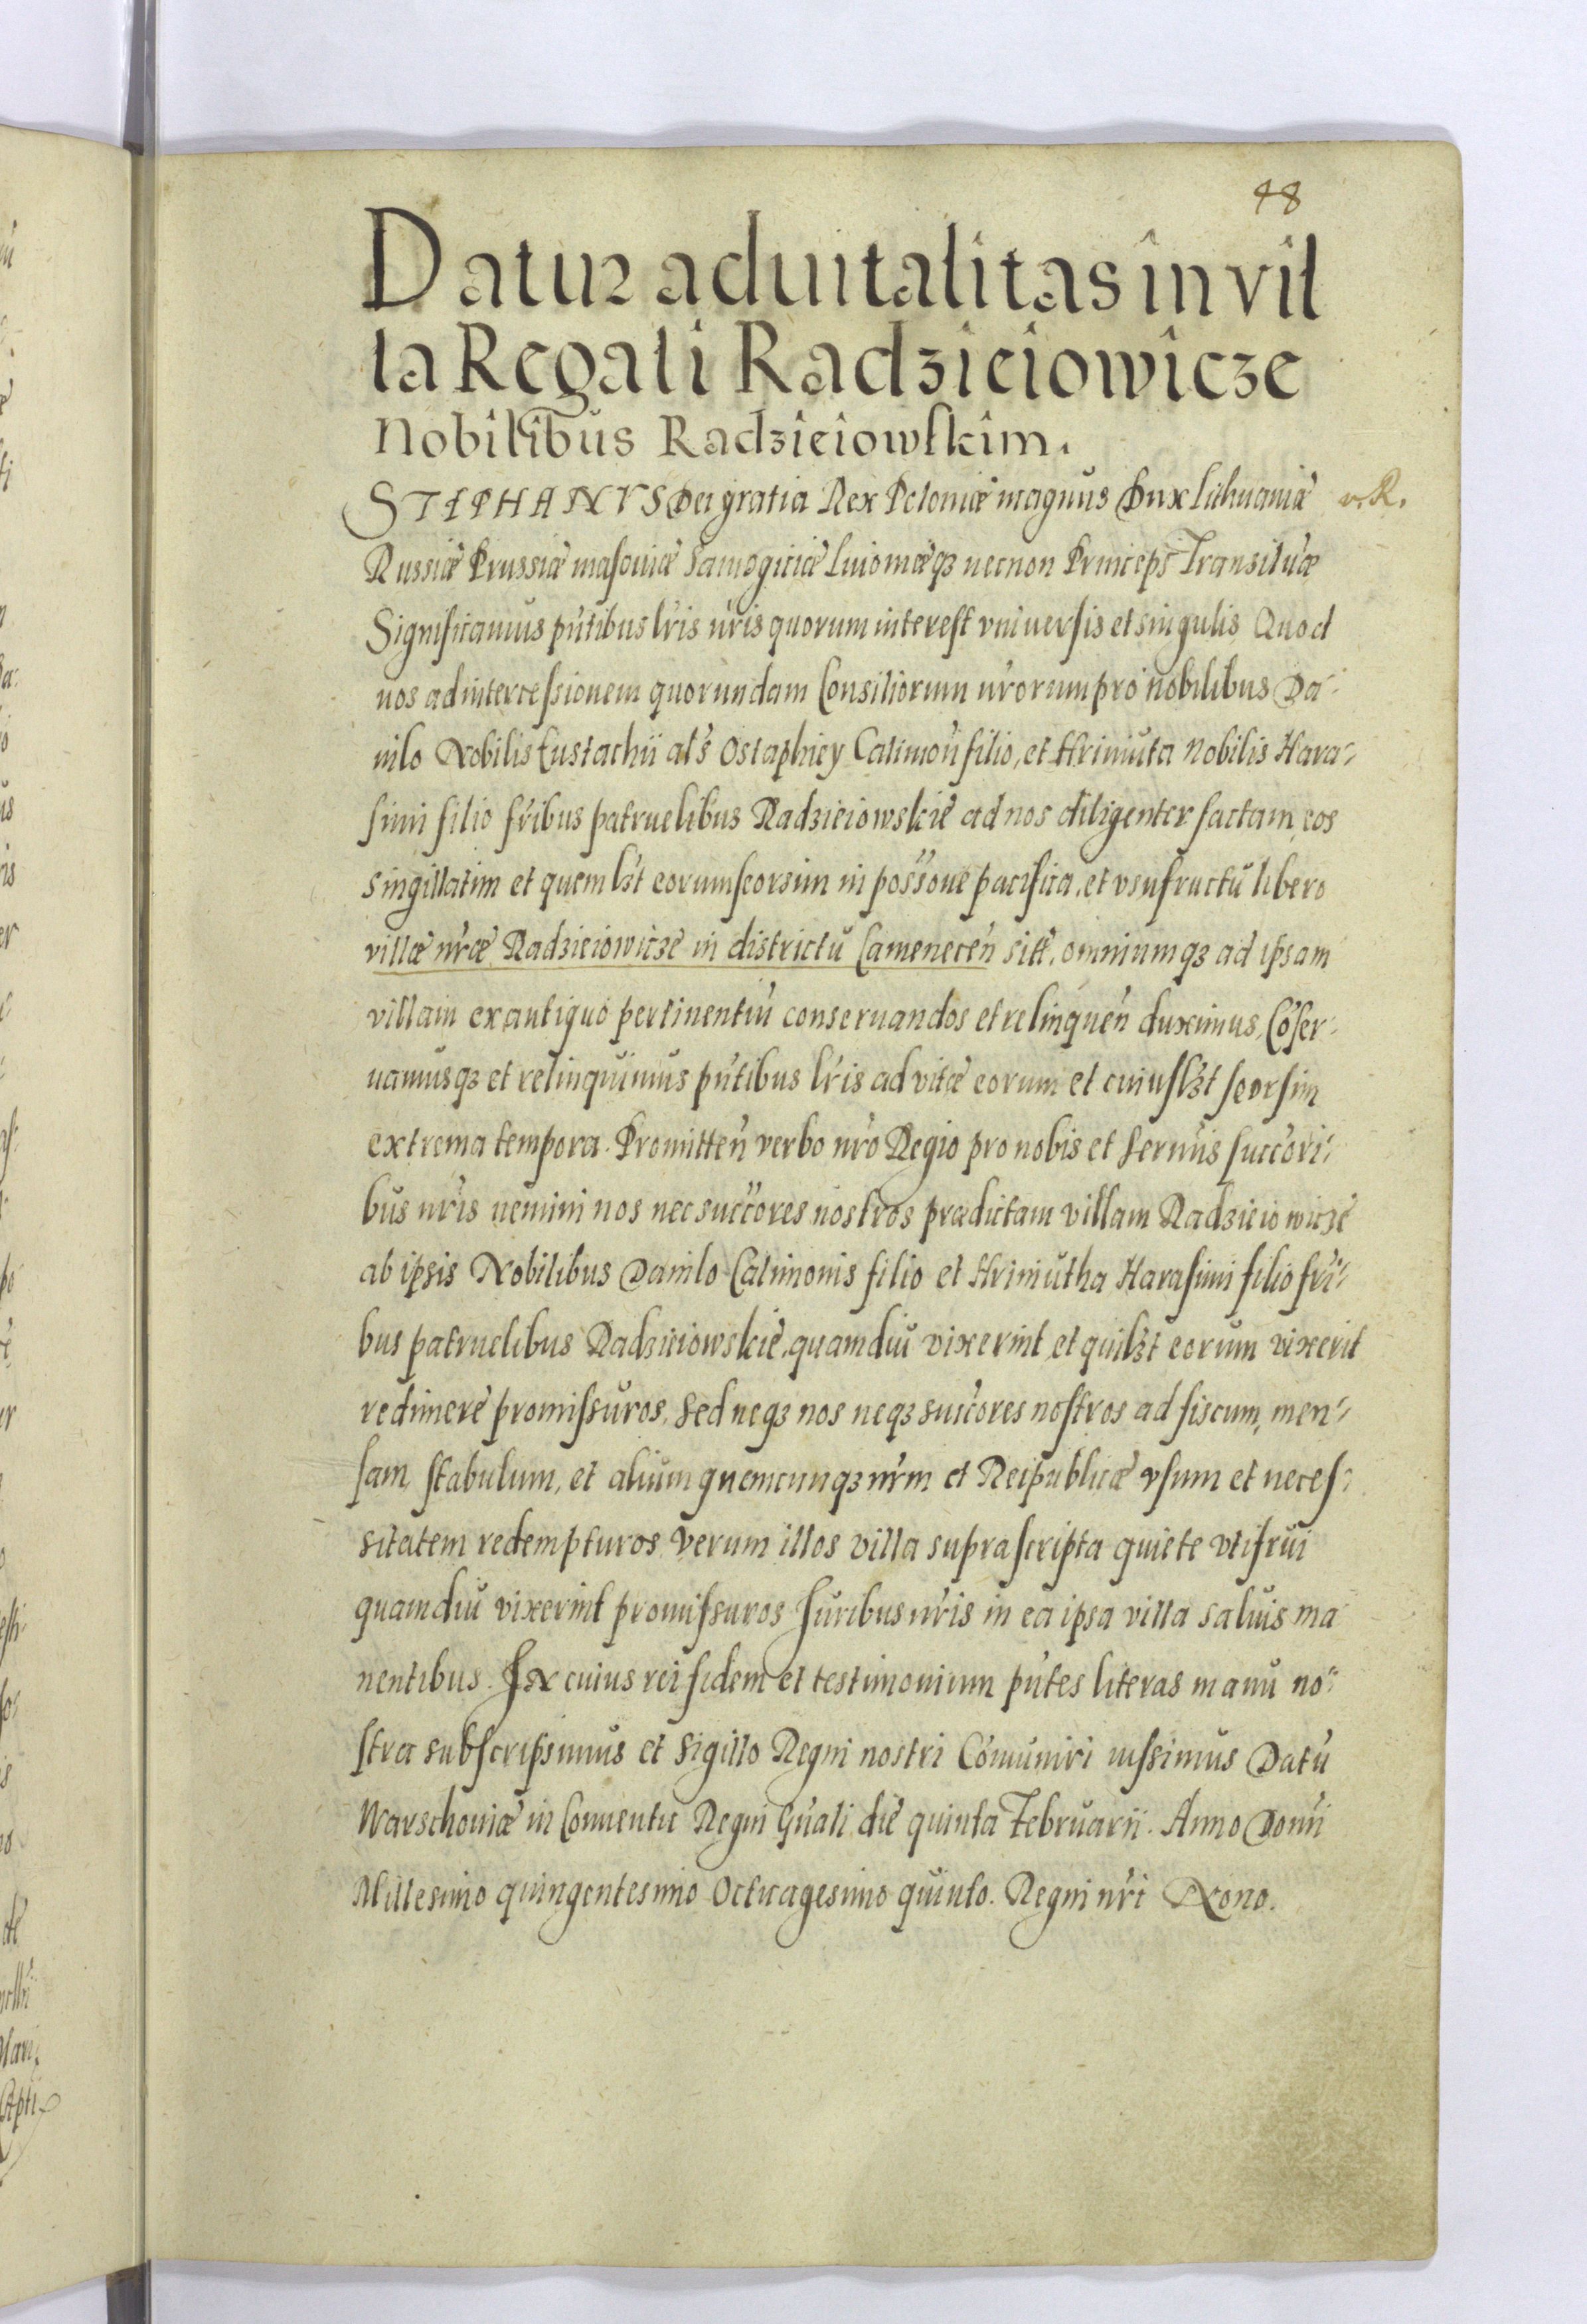 48
Datur aduitalitas in vil
la Regali Radzieiowicze
Nobilibus Radzieiowskim.
STEPHANVS Dei gratia Rex Poloniæ magnus Dux Lithuaniæ v. R.
Russiæ Prussiæ masouiæ Samogitiæ Liuoniæqȝ necnon Princeps Transiluæ
Significamus pñtibus lr̃is nr̃is quorum interest vniuersis et singulis Quod
nos ad intercessionem quorundam Consiliorum nr̃orum pro nobilibus Da-
nilo Nobilis Eustachii al's Ostaphiey Calimoñ filio, et Hriniuta Nobilis Hara-
simi filio fr̃ibus patruelibus Radzieiowskie ad nos diligenter factam, eos
singillatim et quemlȝt eorum seorsim in possone pacifica, et vsufructu libero
villæ nr̃æ Radzieiowicze in districtu Cameneceñ sitæ, omniumqȝ ad ipsam
villam ex antiquo pertinentiũ conseruandos et relinqueñ duximus, Cõser-
uamusqȝ et relinquimus pñtibus lr̃is ad vitæ eorum et cuiuslȝt seorsim
extrema tempora. Promitteñ verbo nr̃o Regio pro nobis et Serñis succori-
bus nr̃is nemini nos nec succores nostros prædictam villam Radzieiowicze
ab ipsis Nobilibus Danilo Calimonis filio et Hriniutha Harasimi filio fr̃i-
bus patruelibus Radzieiowskie, quamdiu vixerint et quilȝt eorum vixerit
redimere promissuros, Sed neqȝ nos neqȝ succores nostros ad fiscum, men-
sam, stabulum, et alium quemcunqȝ nr̃m et Reipublicæ vsum et neces-
sitatem redempturos. Verum illos villa suprascripta quiete vtifrui
quamdiu vixerint promissuros Juribus nr̃is in ea ipsa villa saluis ma
nentibus. IN cuius rei fidem et testimonium pñtes literas manu no-
stra subscripsimus et Sigillo Regni nostri Cõmuniri iussimus Datũ
Warschouiæ in Conuentu Regni Gñali die quinta Februarii. Anno Domi
Millesimo quingentesimo Octuagesimo quinto. Regni nr̃i Nono.